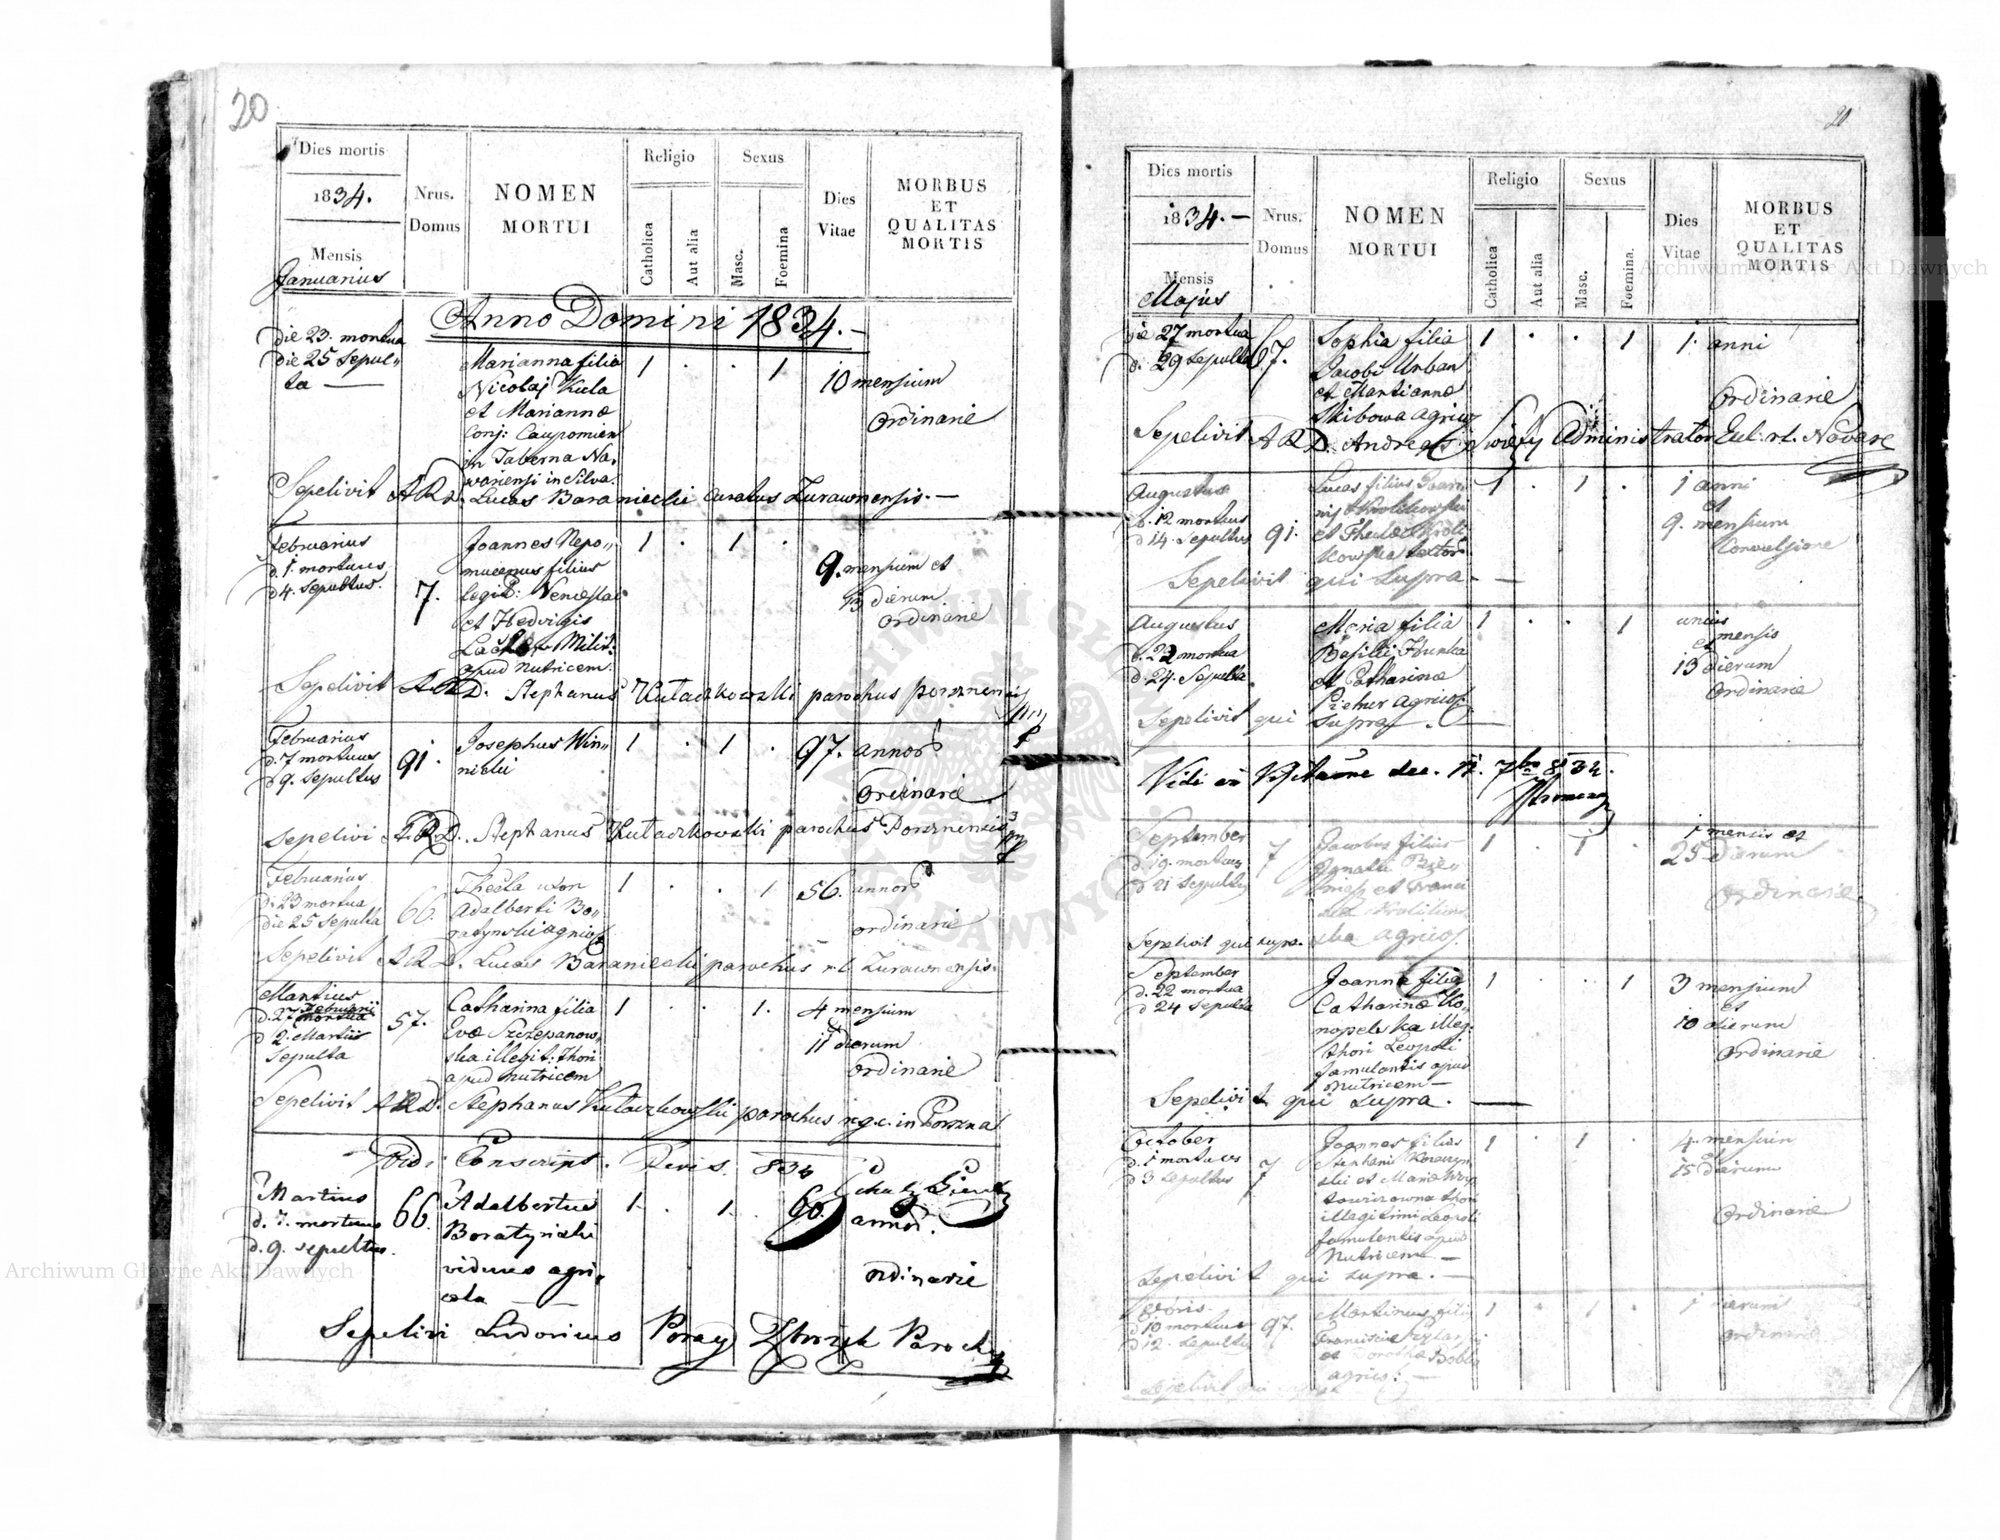 20
Dies mortis
1834.
Mensis
Januarius
Nrus.
Domus
NOMEN
MORTUI
Religio
Catholica
Aut alia
Sexus
Masc.
Foemina
Dies
Vitae
MORBUS
ET
QUALITAS
MORTIS
Anno Domini 1834.-
die 23. mortua
die 25 Sepul-
ta
Marianna filia
Nicolaj Kula
et Mariannæ
Conj: Caupomien
in Taberna Na-
wariensi in Silva.
1 . . 1
10 mensium
Ordinarie
Sepelivit A.R.D. Lucas Baraniecki curatus Zurawnensis.-
Februarius
d. 1. mortuus
d 4. sepultus.
7.
Joannes Nepo-
mucenus filius
et Hedvigis
Milit:
apud nutricem
1 . 1 .
9. mensium et
dierum
ordinarie
Sepelivit A.R.D. Stephanus Kutaczkowski parochus Porznensis
Februarius
d. 7 mortuus
d 9. sepultus
91.
Josephus Win-
nicki
1 . 1 .
97. annor
Ordinarie
Sepelivi A.R.D. Stephanus Kutaczkowski parochus Porznensis
Februarius
d. 23 mortua
die 25 Sepulta
66.
Thecla uxor
Adalberti Bo-
ratynski agricol
1 . . 1
56. annor
ordinarie
Sepelivit A.R.D. Lucas Baraniecki parochus r. l. Zurawnensis.
Martius
d. 27 Februarii
mortua
d 2. Martii
Sepulta
57.
Catharina filia
Evæ Szczepanow-
ska illegit: thori
apud nutricem
1 . . 1.
4 mensium
et
11 dierum
ordinarie
Sepelivit A.R.D. Stephanus Kutaczkowski parochus r. g. c. in Porzna
Conscript. Revis. 834
Martius
d. 7. mortuus
d. 9. sepultus.
66.
Adalbertus
Boratynski
viduus agri-
cola
1. . 1.
60. annor.
ordinarie
Sepelivi Ludovicus Poray Parochus
20
Dies mortis
1834.-
Mensis
Majus
Nrus.
Domus
NOMEN
MORTUI
Religio
Catholica
Aut alia
Sexus
Masc.
Foemina.
Dies
Vitae
MORBUS
ET
QUALITAS
MORTIS
die 27 mortua
d. 29 sepulta
67.
Sophia filia
Jacobi Urban
et Mariannæ
Skibowa agricol
1 . . 1
1. anni
Ordinarie
Sepelivit A.R.D. Andreas Swięty Administrator Eccl. r. l. Navare
Augustus
d. 12 mortuus
d 14. Sepultus
91.
Lucas filius Joan-
nis Krolikowski
et Theclæ Kroli
kowska textor
1 . 1 .
1 anni
et
9. mensium
Convulsione
Sepelivit qui supra.
Augustus
d. 22 mortua
d. 24. Sepulta
Maria filia
Basilii Hunka
et Catharinæ
agricol
1 . . 1
unius
mensis
et
13 dierum
Ordinarie
Sepelivit qui supra.
Vidi in Visitatione dec. 7bra 834.
September
d. 19. mortuus
d 21 Sepultus
7
Jacobus filius
Ignatii
agricol.
1 . 1 .
1 mensis et
25 dierum
Ordinarie
Sepelivit qui supra.
September
d. 22 mortua
d 24 Sepulta
Joanna filia
Catharinæ Ko-
nopelska illeg:
thori Leopoli
famulantis apud
nutricem
1 . . 1
3 mensium
et
10 dierum
Ordinarie
Sepelivit qui supra.
October
d. 1 mortuus
d 3 sepultus
7
Joannes filius
Stephani
ski et Mariæ
illegitimi Leopoli
famulantis apud
Nutricem
1 . 1 .
4. mensium
et
15 dierum
Ordinarie
Sepelivit qui supra.
8bris.
d 10 mortuus
d 12. sepultus
97.
Martinus filius
Francisci
et Dorothea
agric:
1 . 1 .
1 dierum
ordinarie
Sepelivit qui supra
Archiwum Główne Akt Dawnych
Archiwum Główne Akt Dawnych
ARCHIWUM GŁÓWNE AKT DAWNYCH